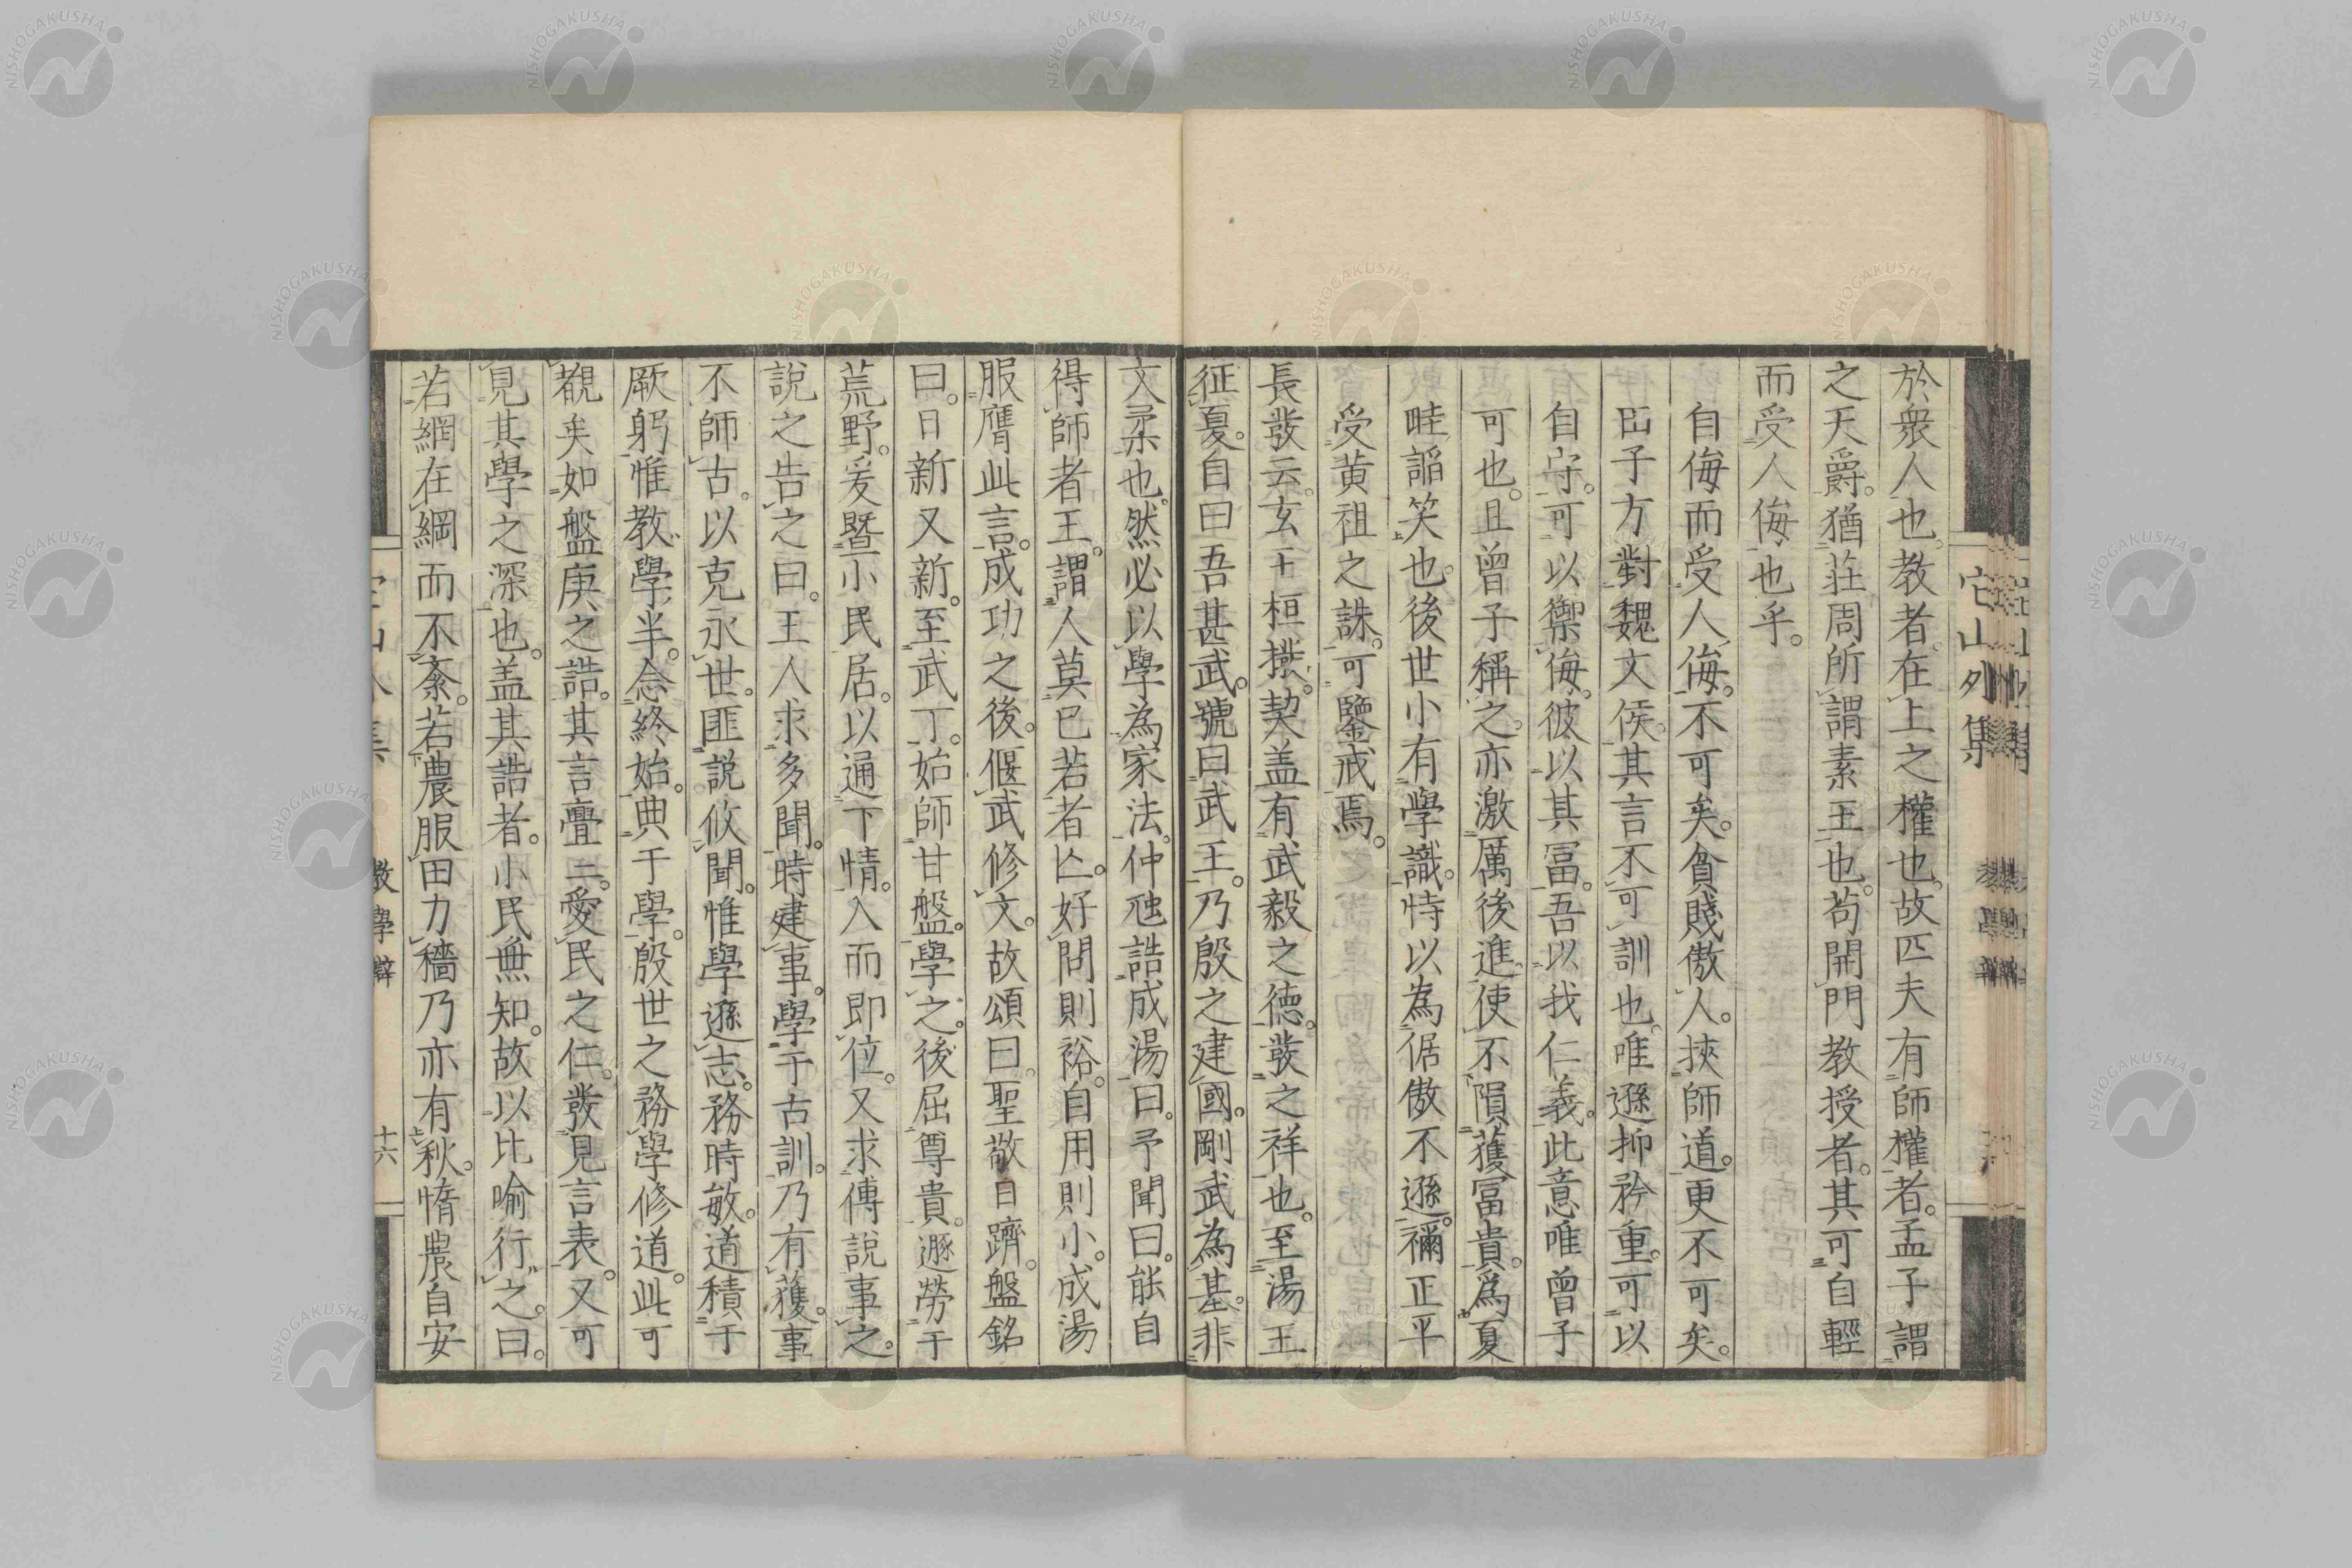 於衆人也。教者在上之權也。故匹夫有師權者。孟子謂
之天爵。猶莊周所謂素王也。苟開門教授者。其可自輕
而受人侮也乎。
自侮而受人侮。不可矣。貧賤傲人。挾師道。更不可矣。
田子方對魏文侯。其言不可訓也。唯遜抑矜重。可以
自守。可以禦侮。彼以其冨。吾以我仁義。此意唯曾子
可也。且曾子稱之。亦激厲後進。使不隕獲冨貴。爲夏
畦謟笑也。後世小有學識。恃以為倨傲不遜。禰正平
受黄祖之誅。可鑒戒焉。
長發云。玄王桓撥。契盖有武毅之德。發之祥也。至湯王
征夏。自曰吾甚武。號曰武王。乃殷之建國。剛武為基。非
文柔也。然必以學為家法。仲虺誥成湯曰。予聞曰。能自
得師者王。謂人莫已若者亾。好問則裕。自用則小。成湯
服膺此言。成功之後。偃武修文。故頌曰。聖敬日躋。盤銘
曰。日新又新。至武丁。始師甘盤。學之。後屈尊貴。遯勞于
荒野。爰曁小民居。以通下情。入而即位。又求傅說事之。
說之告之曰。王人求多聞。時建事。學于古訓。乃有獲。事
不師古。以克永世。匪説攸聞。惟學遜志。務時敏。道積于
厥躬。惟教學半。念終始。典于學。殷世之務學修道。此可
覩矣。如盤庚之誥。其言亹々。愛民之仁。發見言表。又可
見其學之深也。盖其誥者。小民無知。故以比喻行之。曰。
若網在綱而不紊。若農服田力穡乃亦有秋。惰農自安
它山列集
教學辯
十六